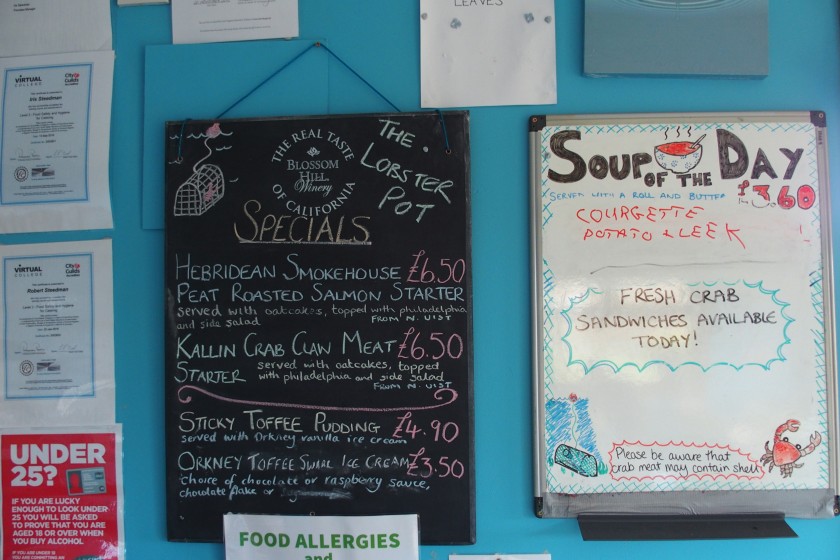 LEAVES
VIRTUAL
COLLEGE
City&
Guilds
Iris Steedman
VIRTUAL
COLLEGE
City&
Guilds
Robert Steedman
UNDER
25?
IF YOU ARE LUCKY
ENOUGH TO LOOK UNDER
25 YOU WILL BE ASKED
TO PROVE THAT YOU ARE
AGED 18 OR OVER WHEN
YOU BUY ALCOHOL
IF YOU ARE UNDER 18
YOU ARE COMMITTING AN
THE REAL TASTE
BLOSSOM
HILL
Winery
OF CALIFORNIA
THE
LOBSTER
POT
SPECIALS
HEBRIDEAN SMOKEHOUSE £6.50
PEAT ROASTED SALMON STARTER
served with oatcakes, topped with philadelphia
and side salad FROM N. UIST
KALLIN CRAB CLAW MEAT £6.50
STARTER served with oatcakes, topped
with philadelphia and side salad
FROM N. UIST
STICKY TOFFEE PUDDING £4.90
served with Orkney vanilla ice cream
ORKNEY TOFFEE SWIRL ICE CREAM £3.50
Choice of chocolate or raspberry sauce,
chocolate flake or
FOOD ALLERGIES
and
SOUP OF THE DAY
SERVED WITH A ROLL AND BUTTER £3.60
COURGETTE
POTATO & LEEK !
FRESH CRAB
SANDWICHES AVAILABLE
TODAY!
Please be aware that
crab meat may contain shell